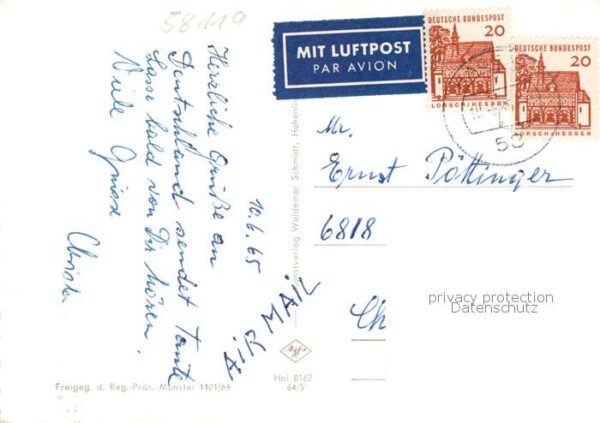 58119
MIT LUFTPOST
PAR AVION
DEUTSCHE BUNDESPOST
20
LORSCH/HESSEN
DEUTSCHE BUNDESPOST
20
LORSCH/HESSEN
Herzliche Grüße an
Deutschland sendet Tante
Lass bald von Dir hören.
Viele Grüsse
10.6.65
AIR MAIL
Mr.
Ernst Pöttinger
6818
Ch
privacy protection
Datenschutz
Kunstverlag Waldemar Schmidt, Hohenlim
Agfa
Freigeg. d. Reg.-Präs. Münster 1101/64
Hol 0162
64/5
50